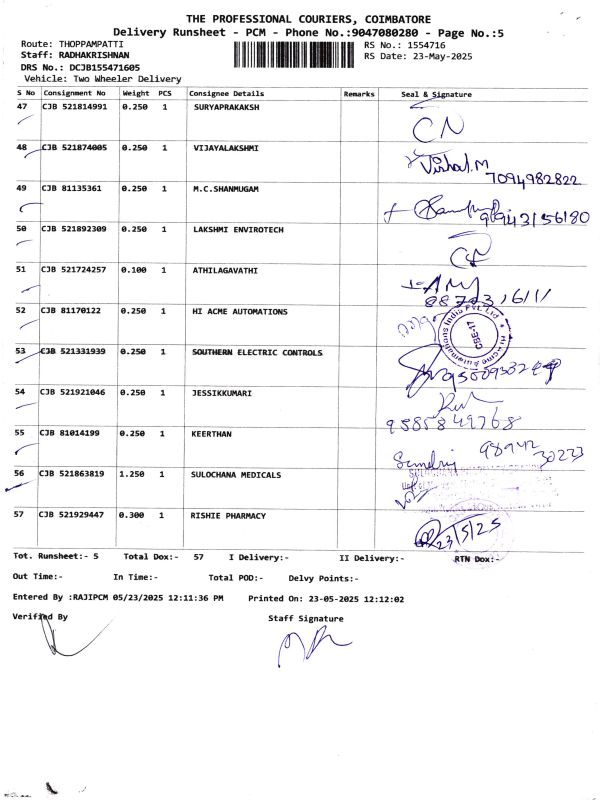 THE PROFESSIONAL COURIERS, COIMBATORE
Delivery Runsheet - PCM - Phone No.:9047080280 - Page No.:5
Route: THOPPAMPATTI
RS No.: 1554716
Staff: RADHAKRISHNAN
RS Date: 23-May-2025
DRS No.: DCJB155471605
Vehicle: Two Wheeler Delivery
S No Consignment No Weight PCS Consignee Details Remarks Seal & Signature
47 CJB 521814991 0.250 1 SURYAPRAKAKSH CN
48 CJB 521874005 0.250 1 VIJAYALAKSHMI Vishal.M
7094982822
49 CJB 81135361 0.250 1 M.C.SHANMUGAM
50 CJB 521892309 0.250 1 LAKSHMI ENVIROTECH
51 CJB 521724257 0.100 1 ATHILAGAVATHI
52 CJB 81170122 0.250 1 HI ACME AUTOMATIONS
CBE-17
53 CJB 521331939 0.250 1 SOUTHERN ELECTRIC CONTROLS
54 CJB 521921046 0.250 1 JESSIKKUMARI
9585849768
55 CJB 81014199 0.250 1 KEERTHAN
98942
30233
56 CJB 521863819 1.250 1 SULOCHANA MEDICALS
57 CJB 521929447 0.300 1 RISHIE PHARMACY 23/5/25
Tot. Runsheet:- 5 Total Dox:- 57 I Delivery:- II Delivery:- RTN Dox:-
Out Time:- In Time:- Total POD:- Delvy Points:-
Entered By :RAJIPCM 05/23/2025 12:11:36 PM Printed On: 23-05-2025 12:12:02
Verified By Staff Signature